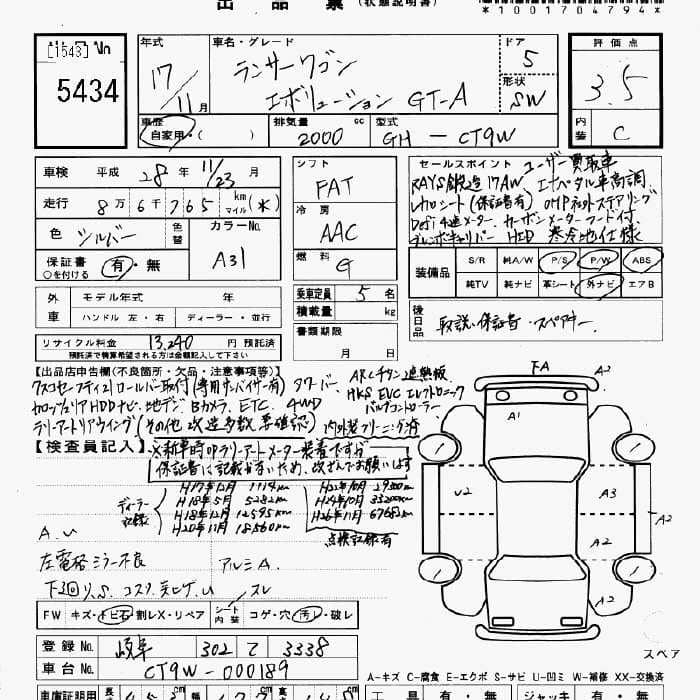 出品票 (状態説明書)
*1001704794*
1543
5434
年式 17/11月
車名・グレード
ランサーワゴン
エボリューション GT-A
ドア 5
形状 SW
評価点 3.5
内装 C
車歴 自家用・( )
排気量 2000 cc
型式 GH-CT9W
車検 平成 28年 11/23 月
走行 8万6千765 km マイル(米)
色 シルバー 色替
カラーNo. A31
保証書 有・無
○を付ける
シフト FAT
冷房 AAC
燃料 G
セールスポイント ユーザー買取車
RAYS鍛造17AW エナペタル車高調
レカロシート(保証書有) OMPネットステアリング
Defi4連メーター カーボンメーターフード付
ブレンボキャリパー HID 寒冷地仕様
装備品 S/R 純A/W P/S P/W ABS
純TV 純ナビ 革シート 外ナビ エアB
外車 モデル年式 年
ハンドル 左・右 ディーラー・並行
乗車定員 5名
積載量 kg
書類期限
月 日
後日品 取説・保証書・スペアキー
リサイクル料金 13,240 円 預託済
預託済で精算希望される方は金額記入して下さい
【出品店申告欄(不良箇所・欠品・注意事項等)】
クスコセーフティ21ロールバー取付(専用サンバイザー有) タワーバー ARCチタン遮熱板
カロッツェリアHDDナビ、地デジ Bカメラ、ETC、4WD HKS EVC エレクトロニック
バルブコントローラー
ラリーアートリアウイング(その他改造多数要確認) 内外装クリーニング済
【検査員記入】
※新車時のラリーアートメーター装着ですが
保証書に記載がないため、改ざんでお願いします
ディーラー記録
H17年12月 1114km
H18年5月 5282km
H18年12月 12595km
H20年11月 18560km
H22年10月 29300km
H24年10月
H26年11月
点検記録有
A.U
左電格ミラー不良 アルミA
下回り.S. コスレ
スレ
FW キズ・トビ石・割レX・リペア
シート内装 コゲ・穴・汚レ・破レ
登録No. 岐阜 302 て 3338
車台No. CT9W-000189
FA
A2
A1
U2
A3
A2
A2
A2
スペア
A-キズ C-腐食 E-エクボ S-サビ U-凹ミ W-補修 XX-交換済
車庫証明用
工具 有・無 ジャッキ 有・無